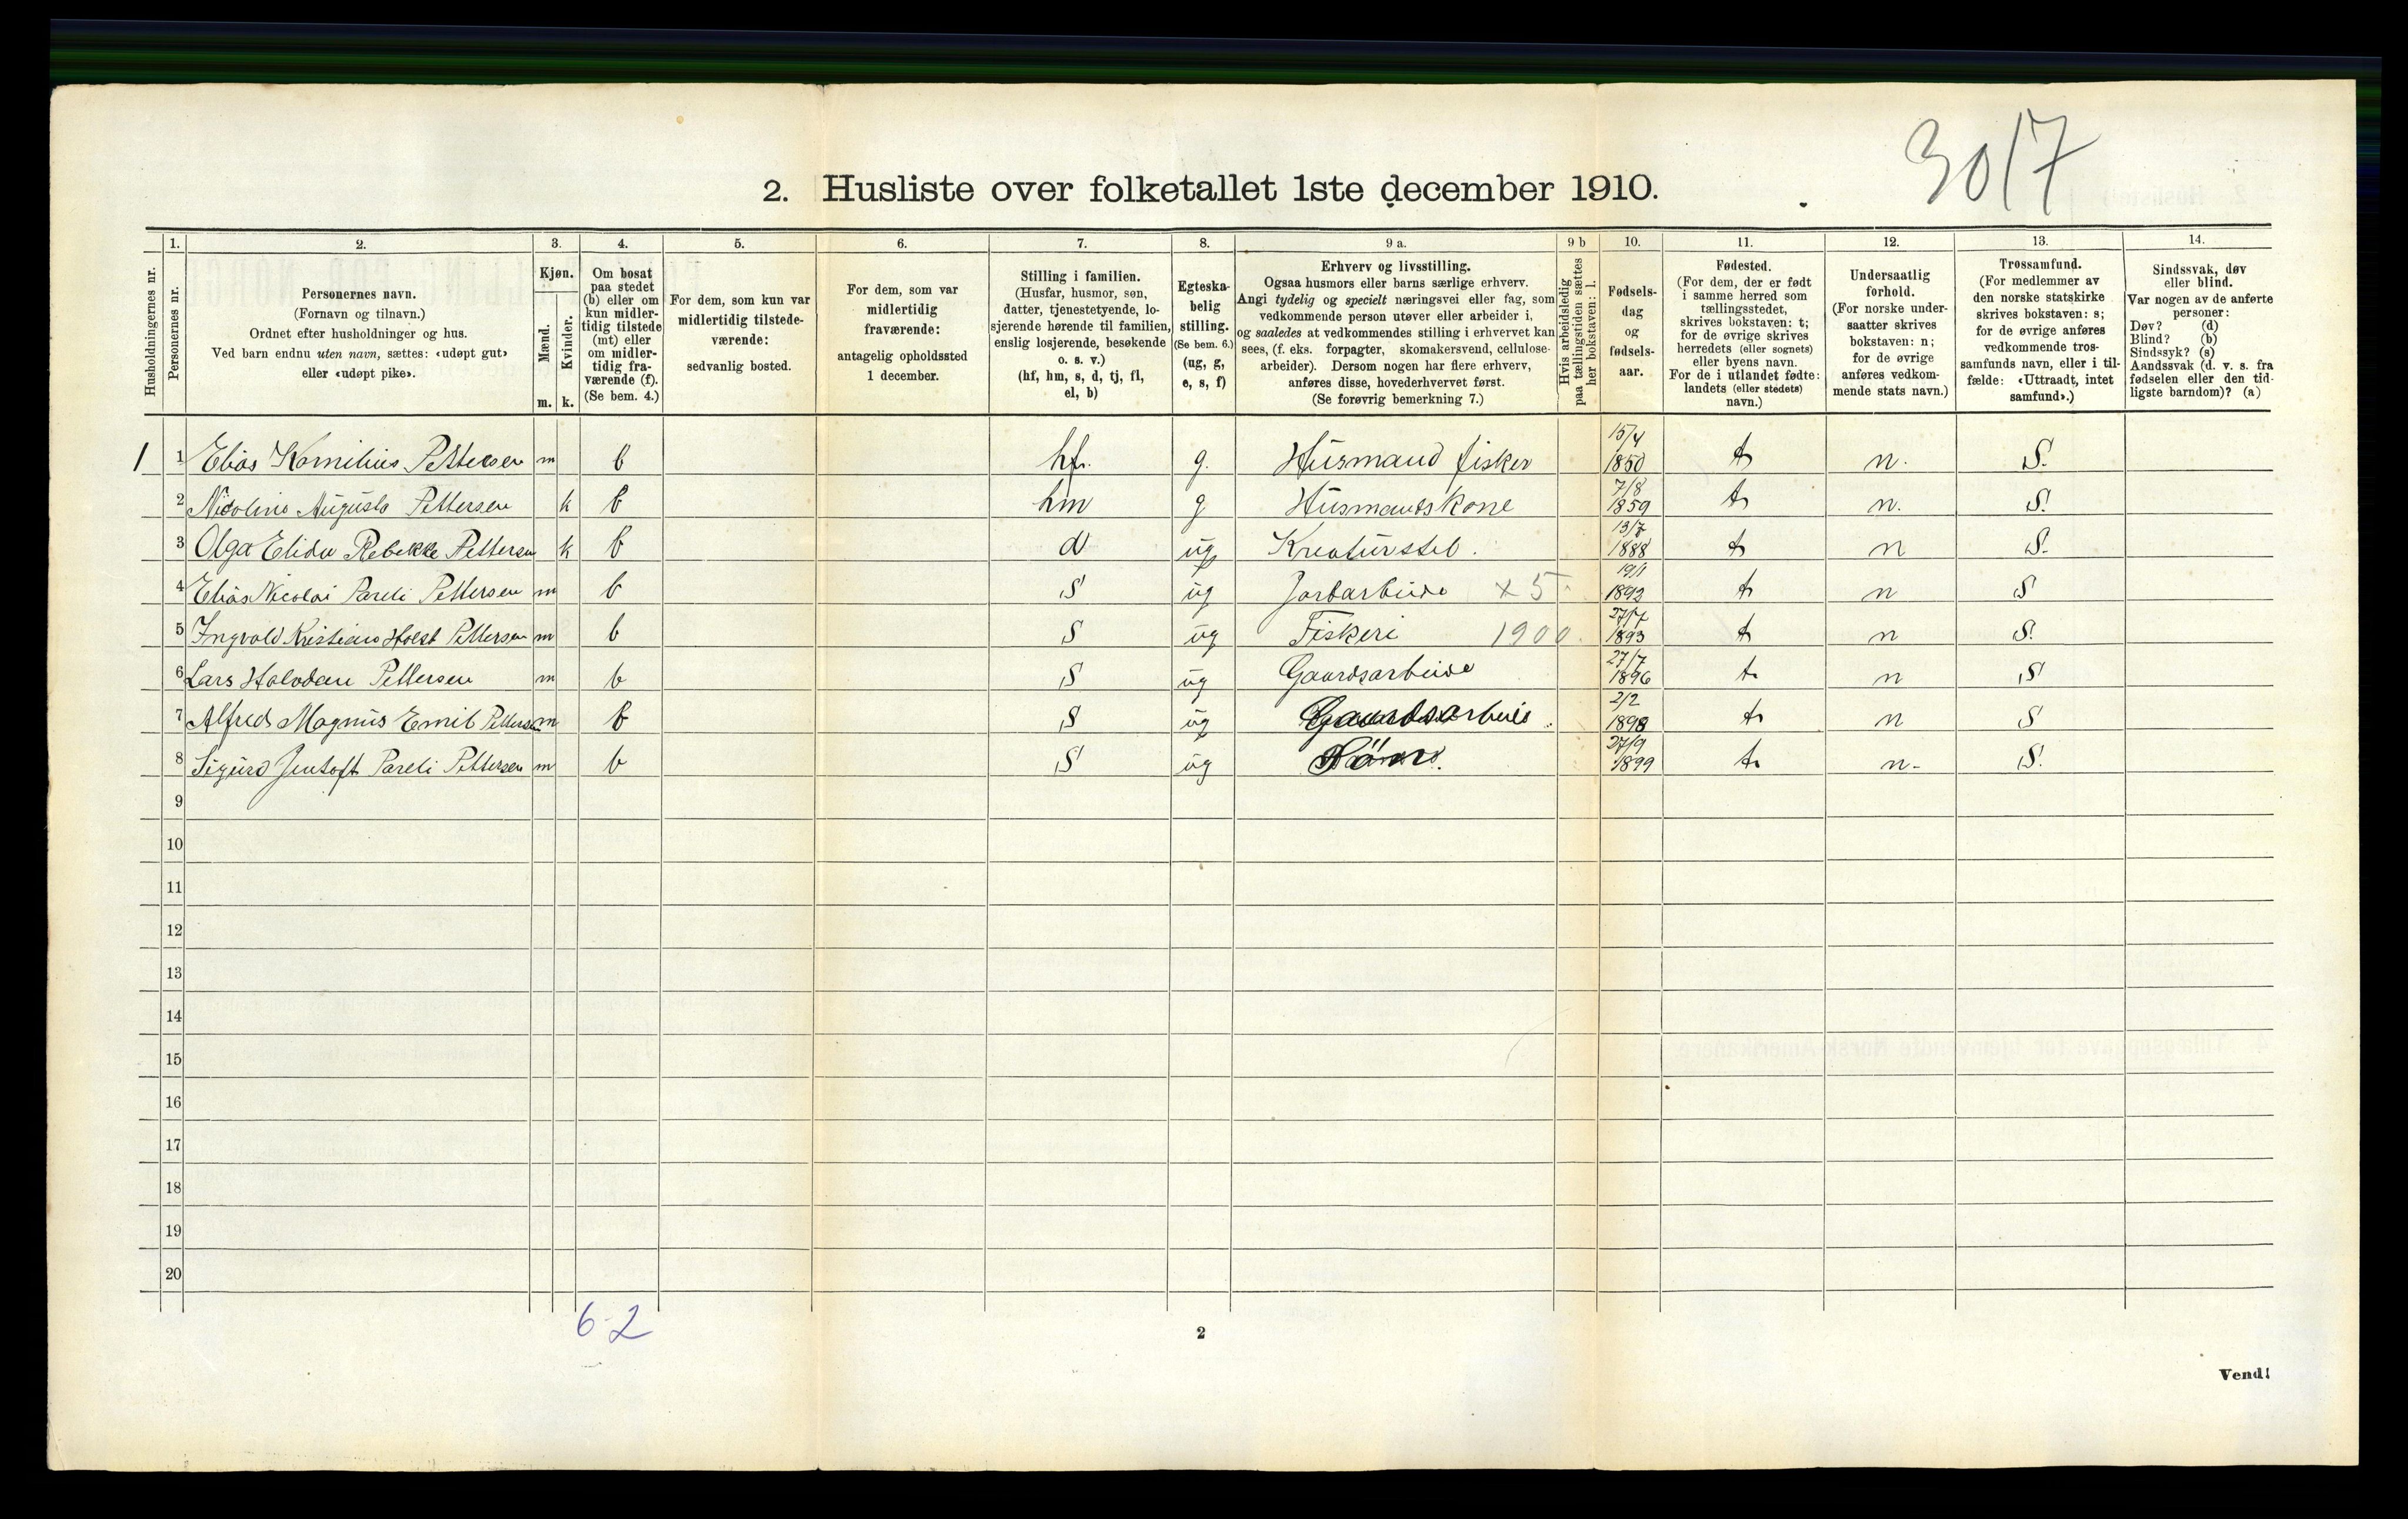 30/7
2. Husliste over folketallet 1ste december 1910.
Husholdningernes nr.
1. Personernes nr.
2. Personernes navn.
(Fornavn og tilnavn.)
Ordnet efter husholdninger og hus.
Ved barn endnu uten navn, sættes: «udøpt gut»
eller «udøpt pike».
3. Kjøn.
Mænd. m.
Kvinder. k.
4. Om bosat
paa stedet
(b) eller om
kun midler-
tidig tilstede
(mt) eller
om midler-
tidig fra-
værende (f).
(Se bem. 4.)
5. For dem, som kun var
midlertidig tilstede-
værende:
sedvanlig bosted.
6. For dem, som var
midlertidig
fraværende:
antagelig opholdssted
1 december.
7. Stilling i familien.
(Husfar, husmor, søn,
datter, tjenestetyende, lo-
sjerende hørende til familien,
enslig losjerende, besøkende
o. s. v.)
(hf, hm, s, d, tj, fl,
el, b)
8. Egteska-
belig
stilling.
(Se bem. 6.)
(ug, g,
e, s, f)
9 a. Erhverv og livsstilling.
Ogsaa husmors eller barns særlige erhverv.
Angi tydelig og specielt næringsvei eller fag, som
vedkommende person utøver eller arbeider i,
og saaledes at vedkommendes stilling i erhvervet kan
sees, (f. eks. forpagter, skomakersvend, cellulose-
arbeider). Dersom nogen har flere erhverv,
anføres disse, hovederhvervet først.
(Se forøvrig bemerkning 7.)
9 b Hvis arbeidsledig
paa tællingstiden sættes
her bokstaven: l.
10. Fødsels-
dag
og
fødsels-
aar.
11. Fødested.
(For dem, der er født
i samme herred som
tællingsstedet,
skrives bokstaven: t;
for de øvrige skrives
herredets (eller sognets)
eller byens navn.
For de i utlandet fødte:
landets (eller stedets)
navn.)
12. Undersaatlig
forhold.
(For norske under-
saatter skrives
bokstaven: n;
for de øvrige
anføres vedkom-
mende stats navn.)
13. Trossamfund.
(For medlemmer av
den norske statskirke
skrives bokstaven: s;
for de øvrige anføres
vedkommende tros-
samfunds navn, eller i til-
fælde: «Uttraadt, intet
samfund».)
14. Sindssvak, døv
eller blind.
Var nogen av de anførte
personer:
Døv? (d)
Blind? (b)
Sindssyk? (s)
Aandssvak (d. v. s. fra
fødselen eller den tid-
ligste barndom)? (a)
1 1 Elias Kornilius Pettersen m b hf. g. Husmand fisker 15/4 1850 t n. S.
2 Nicoline Augusta Pettersen k b hm g Husmandskone 7/8 1859 t n. S.
3 Olga Elida Rebekke Pettersen k b d ug Kreaturstel. 13/7 1888 t n S.
4 Elias Nicolai Pareli Pettersen m b S ug Jordarbeide x 5 19/1 1892 t n S
5 Ingvald Kristian Holst Pettersen m b S ug Fiskeri 1900. 27/7 1893 t n S.
6 Lars Halvdan Pettersen m b S ug Gaardsarbeide 27/7 1896 t n S
7 Alfred Magnus Emil Pettersen m b S ug Gaardsarbeide 2/2 1898 t n S
8 Sigurd Jentoft Pareli Pettersen m b S ug 27/9 1899 t n- S.
9
10
11
12
13
14
15
16
17
18
19
20
6-2
2
Vend!